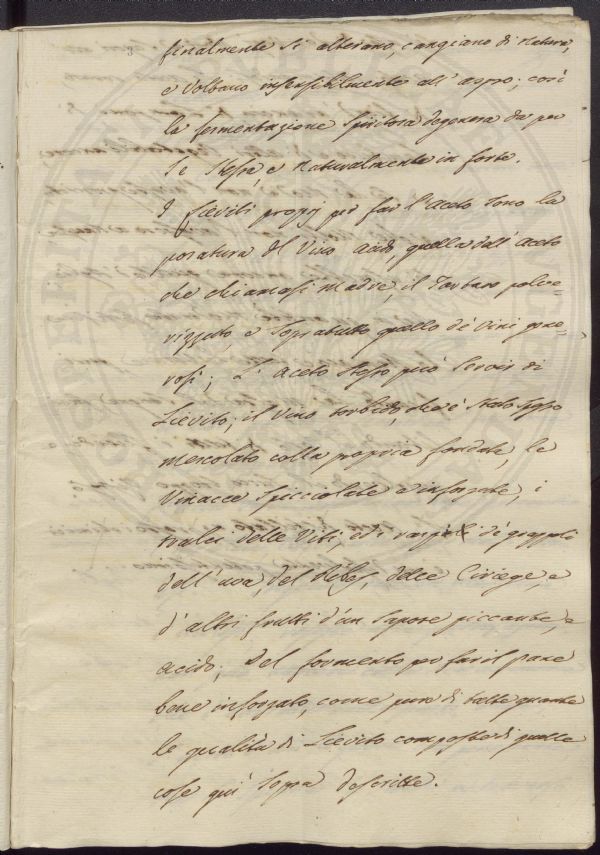 finalmente si alterano, cangiano di natura,
e Voltano insensibilmente all' aspro; così
la fermentazione Spiritosa degenera da per
Se Stessa, e Naturalmente in forte.
I Lieviti proprj per far l'Aceto Sono la
posatura del Vino acido, quella dell' Aceto
che chiamasi Madre, il Tartaro polve=
rizzato, e Soprabutto quello de' Vini gene=
rosi; L' aceto stesso può Servir di
Lievito; il Vino torbido, che è Stato Spesso
mescolato colla propria fondata, le
Vinacce Spiccolate e inforzate, i
tralci delle Viti, ed i raspi di grappoli
dell' uva, del Ribes, delle Ciriege, e
d' altri frutti d'un Sapore piccante, e
acido; Del formento per far il pane
bene inforzato, come pure di tutte quante
le qualità di Lievito composte di quelle
cose quì Sopra descritte.